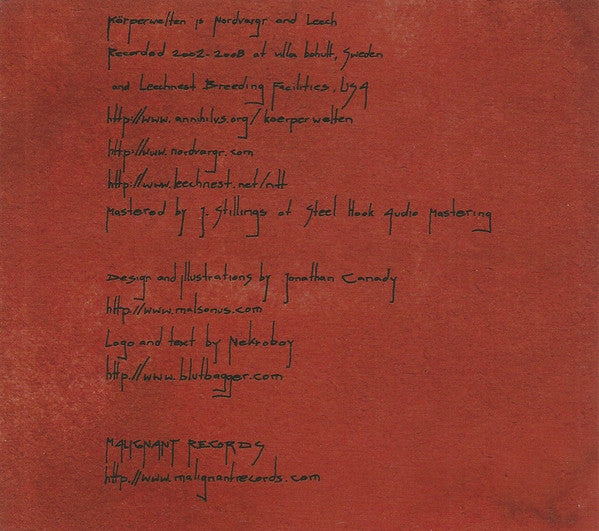 Körperwelten is Nordvargr and Leech
Recorded 2002-2008 at villa bohult, Sweden
and Leechnest Breeding Facilities, USA
http://www.annihilvs.org/koerperwelten
http://www.nordvargr.com
http://www.leechnest.net/ntt
Mastered by J. Stillings at Steel Hook Audio Mastering
Design and illustrations by Jonathan Canady
http://www.malsonus.com
Logo and text by Nekroboy
http://www.blutbagger.com
MALIGNANT RECORDS
http://www.malignantrecords.com